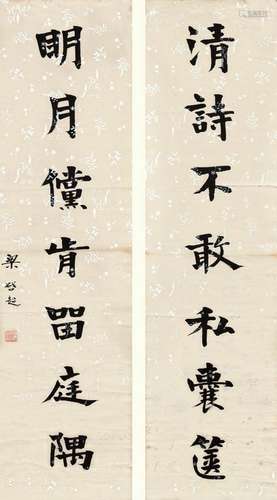 清詩不敢私囊箧
明月儻肯留庭隅
梁啟超